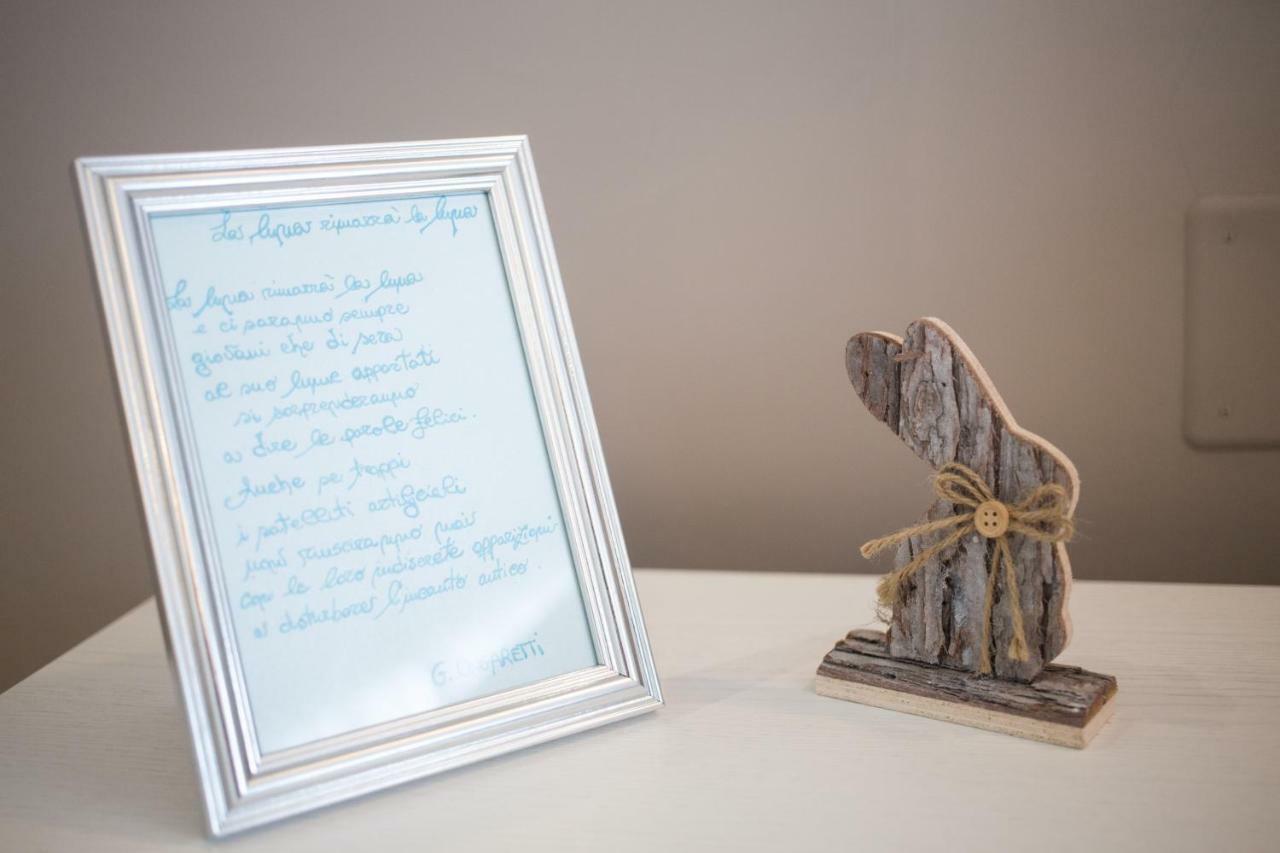 La luna rimarrà la luna
La luna rimarrà la luna
e ci saranno sempre
giovani che di sera
al suo lume appartati
si sorprenderanno
a dire le parole felici.
Anche se troppi
i satelliti artificiali
non riusciranno mai
con le loro indiscrete apparizioni
a disturbare l'incanto antico.
G.